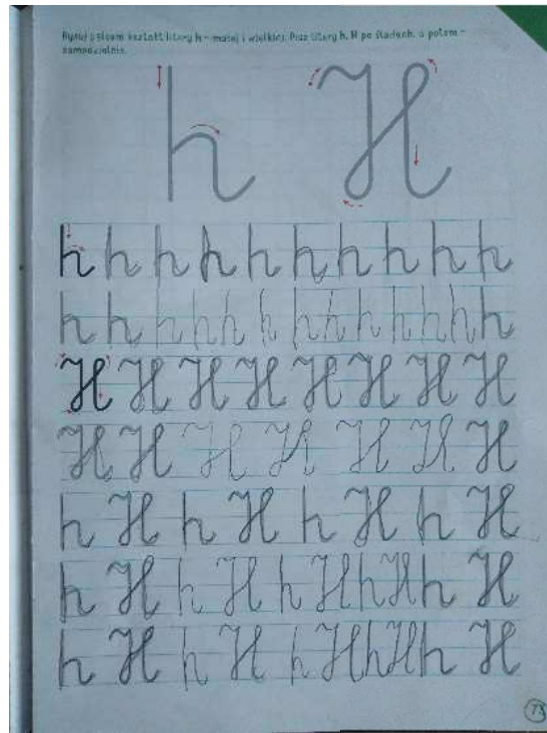 Rysuj palcem kształt litery h – małej i wielkiej. Pisz litery h, H po śladach, a potem –
samodzielnie.
h H
h h h h h h h h h h
h h h h h h h h h h h h
H H H H H H H H
H H H H H H H
h H h H h H h H
h H h H h H h H h H
h H h H h H h H h H
73